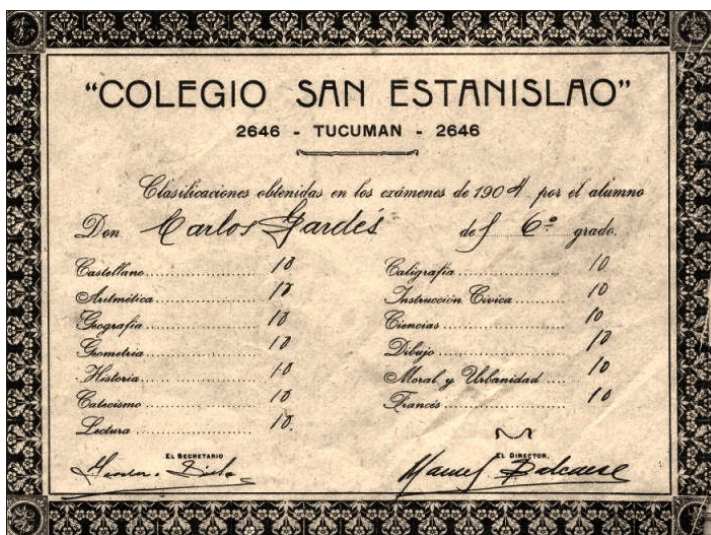 "COLEGIO SAN ESTANISLAO"
2646 - TUCUMAN - 2646
Clasificaciones obtenidas en los exámenes de 1904 por el alumno
Don Carlos Gardés del 6º grado.
Castellano 10
Aritmética 10
Geografía 10
Geometria 10
Historia 10
Catecismo 10
Lectura 10.
Caligrafía 10
Instrucción Cívica 10
Ciencias 10
Dibujo 10
Moral y Urbanidad 10
Francés 10
EL SECRETARIO
EL DIRECTOR,
Manuel